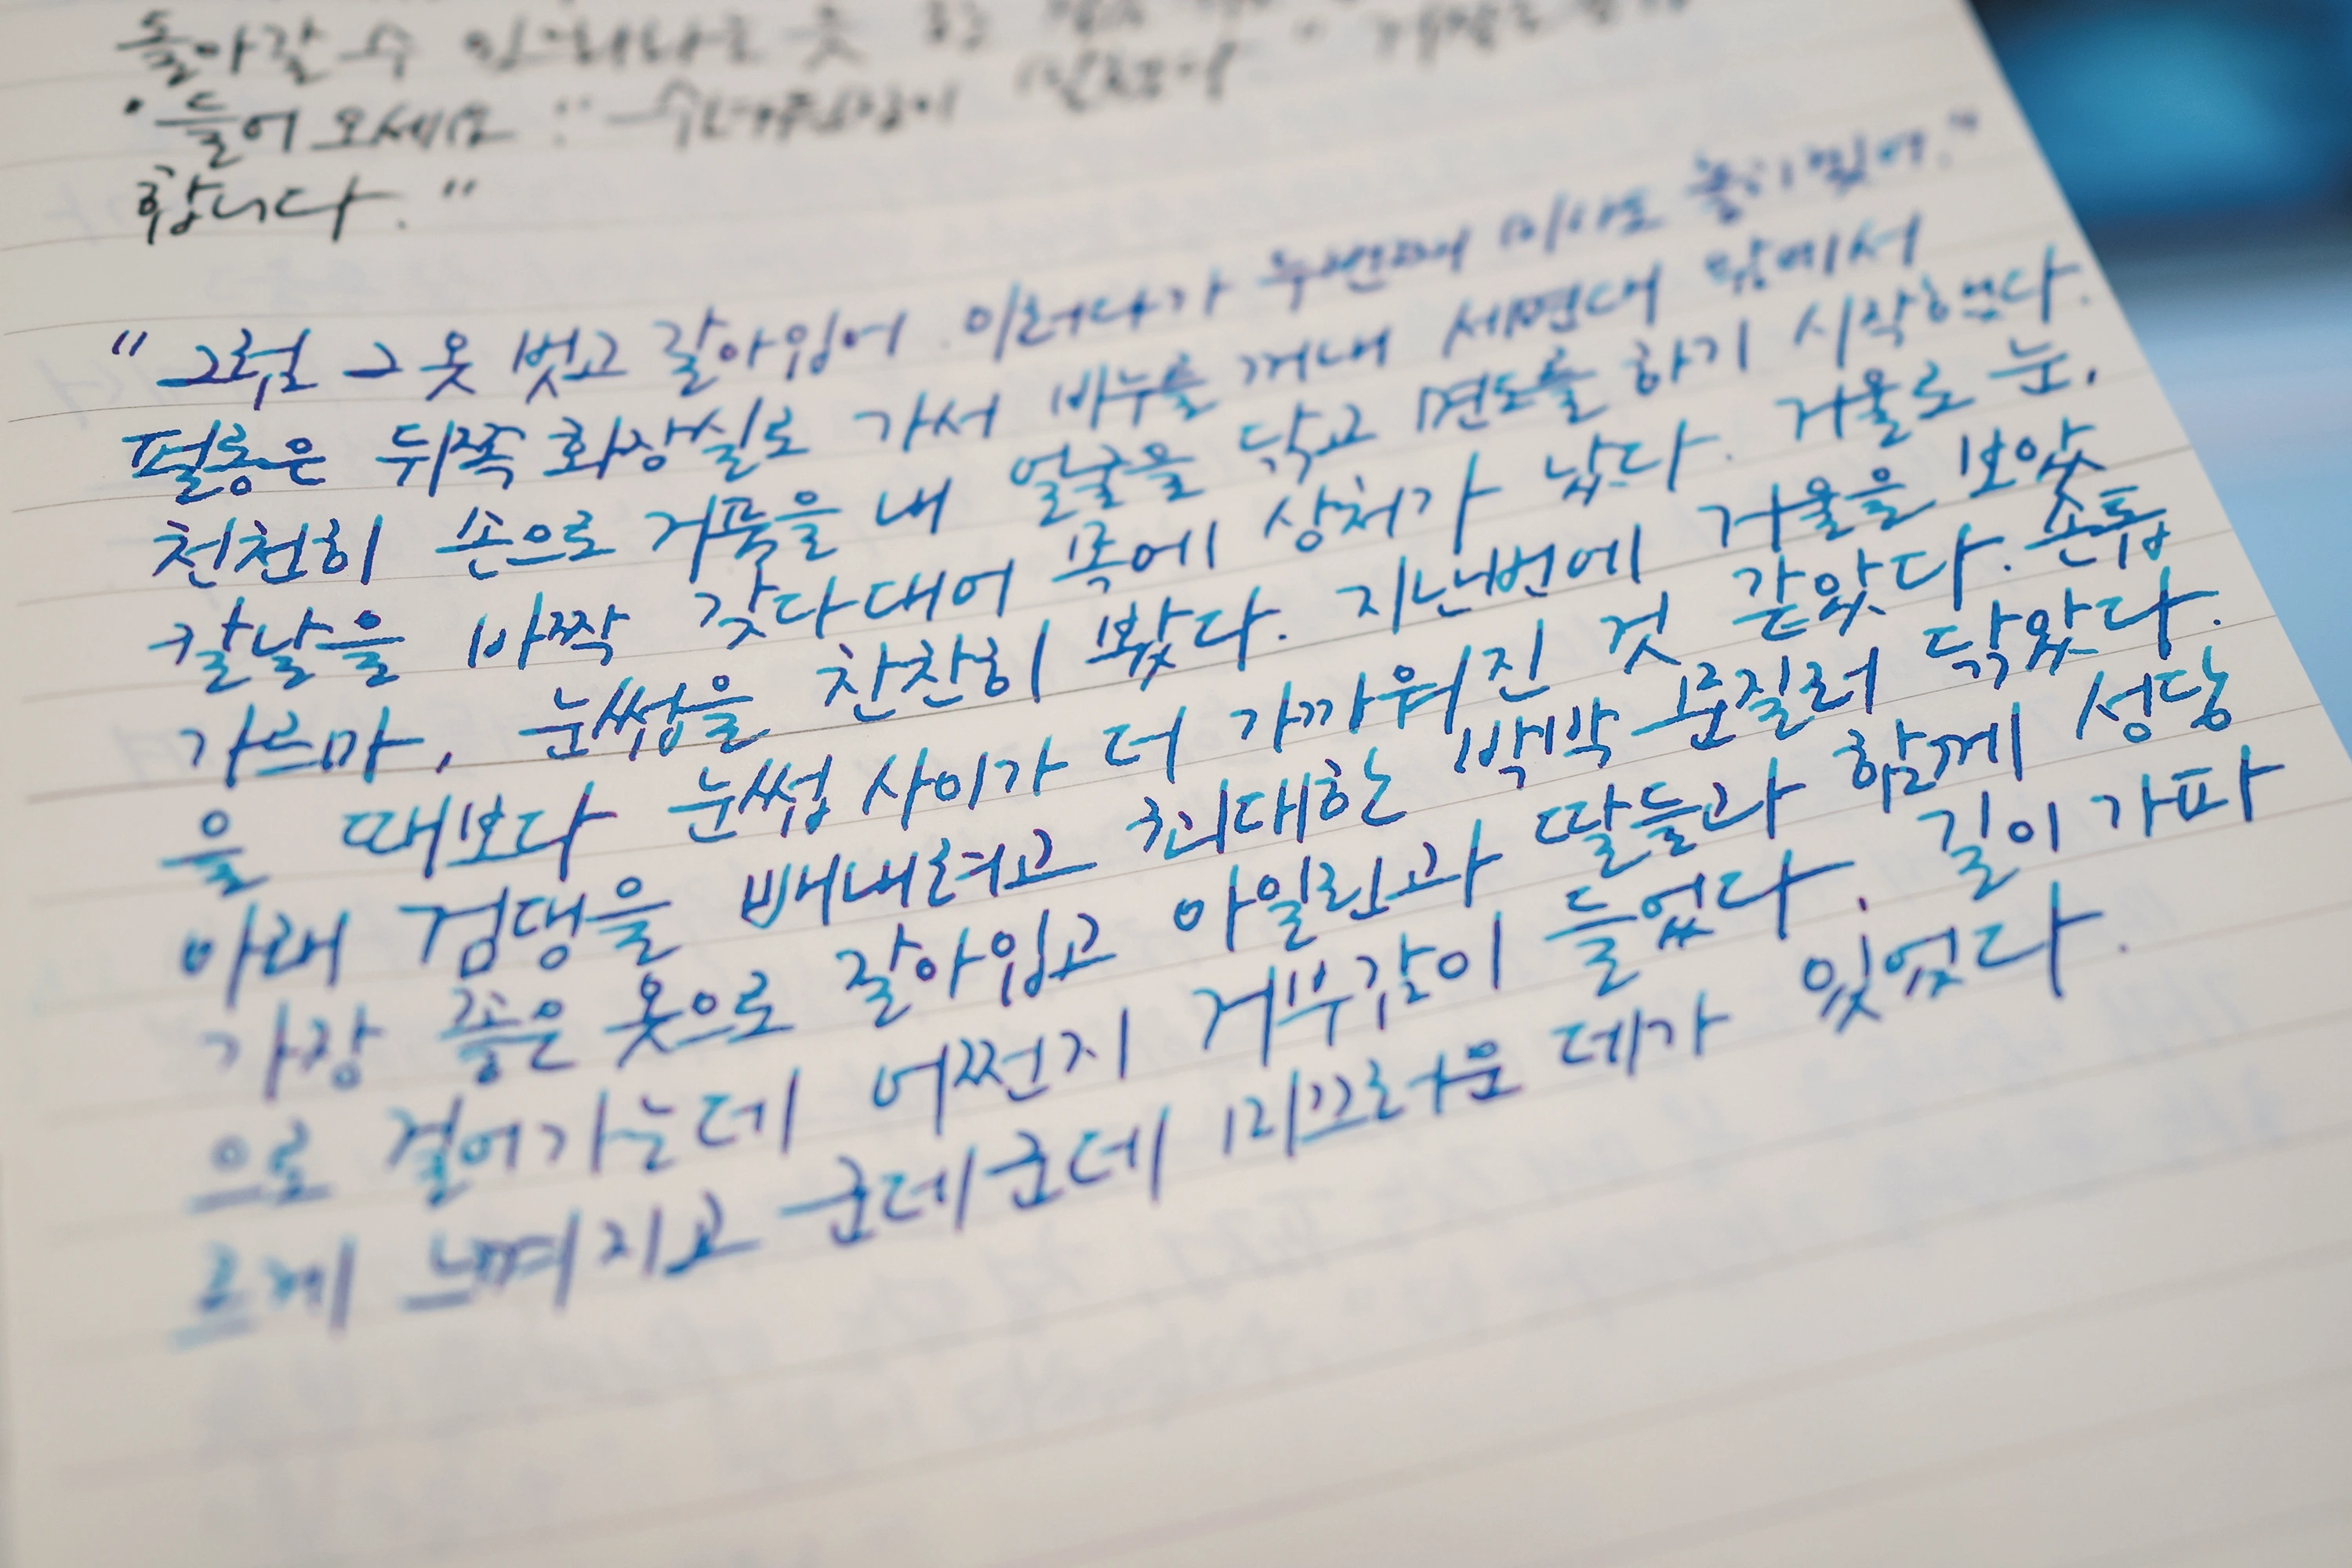 돌아갈 수
"들어오세요." 수녀원장이 말했다
합니다."
"그럼 그 옷 벗고 갈아입어. 이러다가 두번째 미사도 놓치겠어."
펄롱은 뒤쪽 화장실로 가서 비누를 꺼내 세면대 앞에서
천천히 손으로 거품을 내 얼굴을 닦고 면도를 하기 시작했다.
칼날을 바짝 갖다대어 목에 상처가 났다. 거울로 눈,
가르마, 눈썹을 찬찬히 봤다. 지난번에 거울을 보았
을 때보다 눈썹 사이가 더 가까워진 것 같았다. 손톱
아래 검댕을 빼내려고 최대한 박박 문질러 닦았다.
가장 좋은 옷으로 갈아입고 아일린과 딸들과 함께 성당
으로 걸어가는데 어쩐지 거부감이 들었다. 길이 가파
르게 느껴지고 군데군데 미끄러운 데가 있었다.